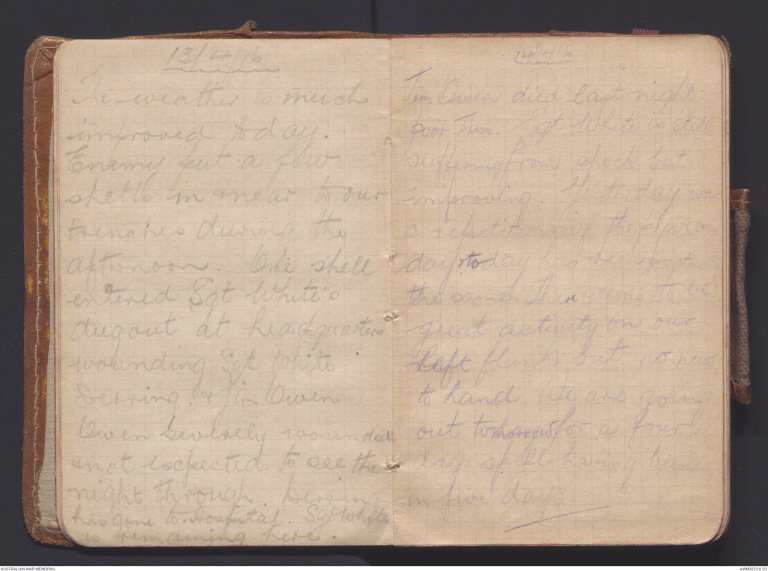 13/4/16
The weather is much
improved today.
Enemy put a few
shells in & near to our
trenches during the
afternoon. One shell
entered Sgt White's
dugout at headquarters
wounding Sgt White
Derring & Jim Owen
Owen severely wounded
& not expected to see the
night through. Derring
has gone to Hospital. Sgt White
is remaining here.
14/4/16
Jim Owen died last night
poor Jim. Sgt White is still
suffering from shock but
improving. Yesterday was
a repetition of the previous
day & today has been
the same. There seems to be
great activity on our
left flank but no news
to hand. We are going
out tomorrow for a four
days spell having been
in five days.
AUSTRALIAN WAR MEMORIAL